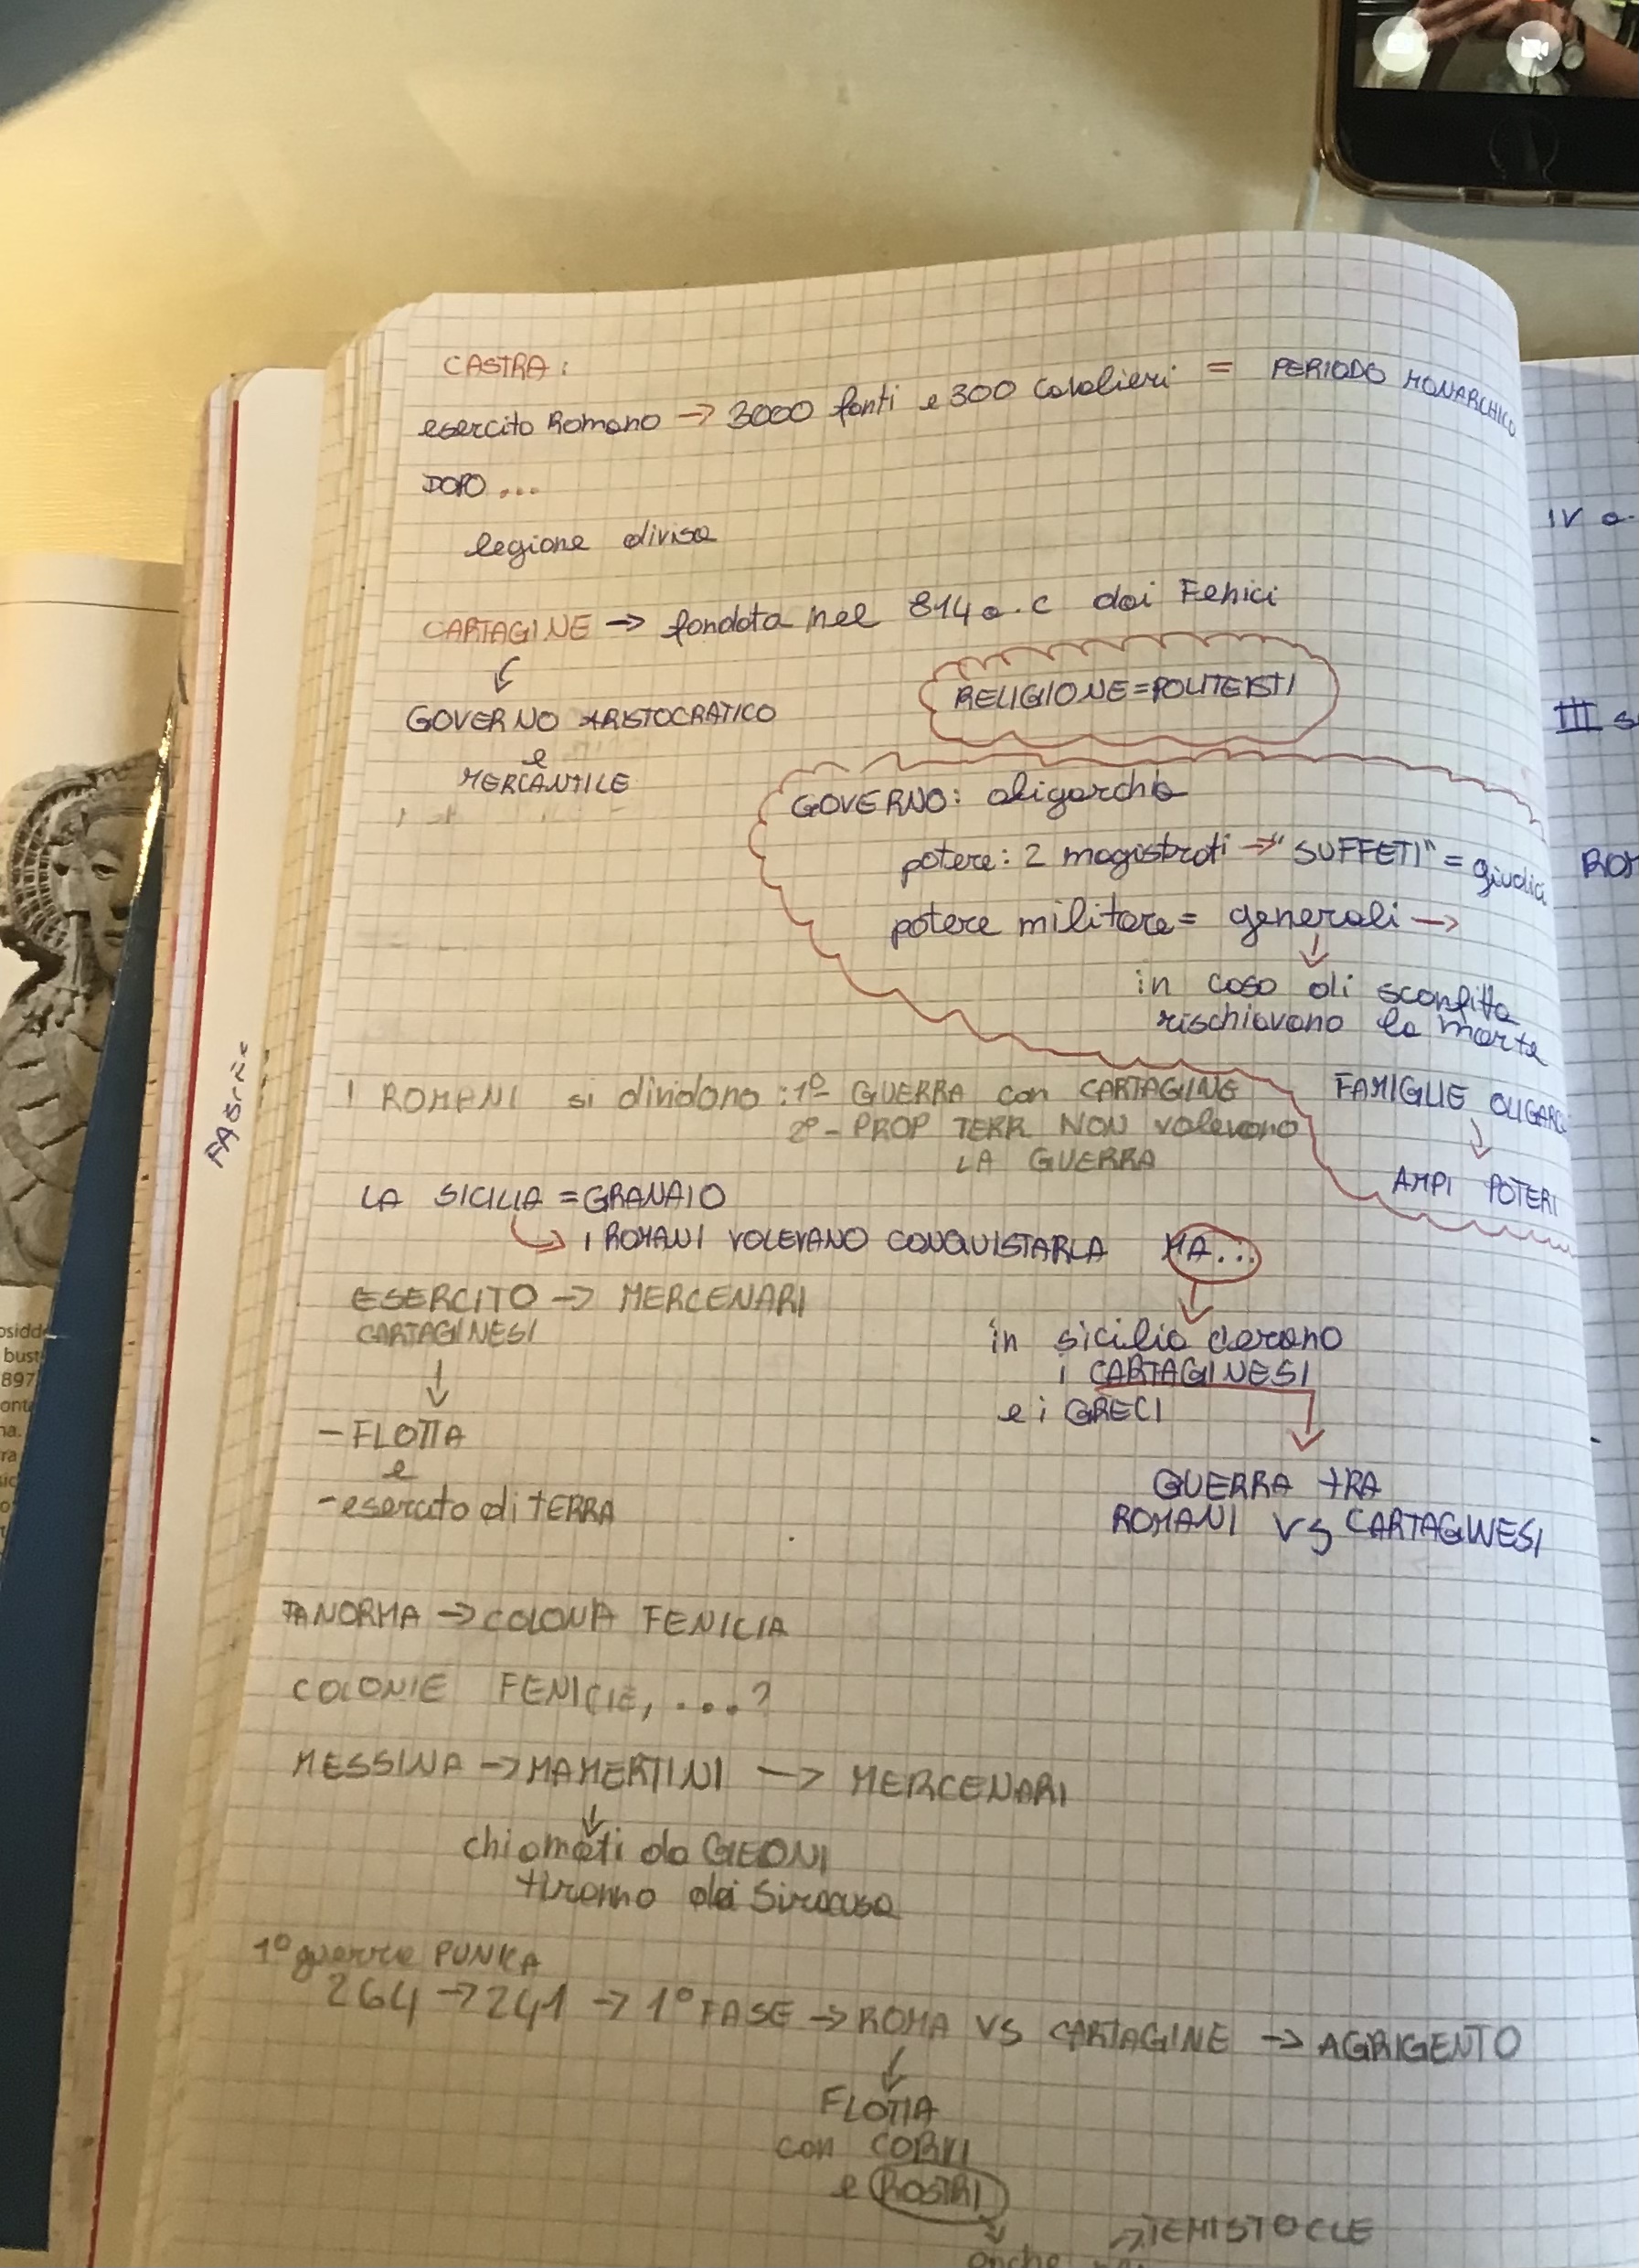 CASTRA:
esercito Romano → 3000 fanti e 300 cavalieri = PERIODO MONARCHICO
DOPO ...
legione divisa
CARTAGINE → fondata nel 814 a.c dai Fenici
GOVERNO ARISTOCRATICO
e
MERCANTILE
RELIGIONE = POLITEISTI
GOVERNO: oligarchia
potere: 2 magistrati → "SUFFETI" = giudici
potere militare = generali →
in caso di sconfitta
rischiavano la morte
FAMIGLIE OLIGARC
AMPI POTERI
I ROMANI si dividono: 1º- GUERRA con CARTAGINE
2º- PROP TERR NON volevano
LA GUERRA
LA SICILIA = GRANAIO
→ I ROMANI VOLEVANO CONQUISTARLA MA...
in sicilia c'erano
i CARTAGINESI
e i GRECI
GUERRA TRA
ROMANI VS CARTAGINESI
ESERCITO → MERCENARI
CARTAGINESI
- FLOTTA
e
- esercito di TERRA
PANORMA → COLONIA FENICIA
COLONIE FENICIE, ...?
MESSINA → MAMERTINI → MERCENARI
chiamati da GEONI
tiranno dei Siracusa
1º guerra PUNICA
264 → 241 → 1º FASE → ROMA VS CARTAGINE → AGRIGENTO
FLOTTA
con CORVI
e ROSTRI
→ TEMISTOCLE
anche
IV a.
III s
ROM
osidd
bust
897